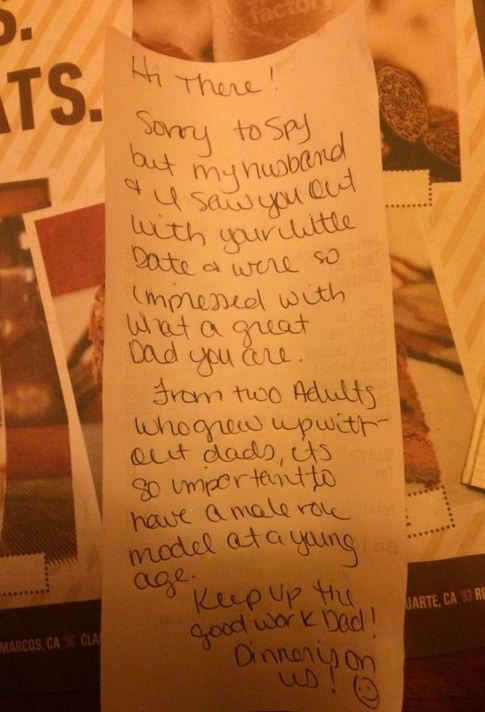 S.
ATS.
factory
Hi There!
Sorry to spy
but my husband
& I saw you out
with your little
Date & were so
impressed with
what a great
Dad you are.
From two Adults
who grew up with-
out dads, its
so important to
have a male role
model at a young
age.
Keep up the
good work Dad!
Dinner is on
us! ☺
MARCOS, CA '96 CLA
UARTE, CA '93 RI